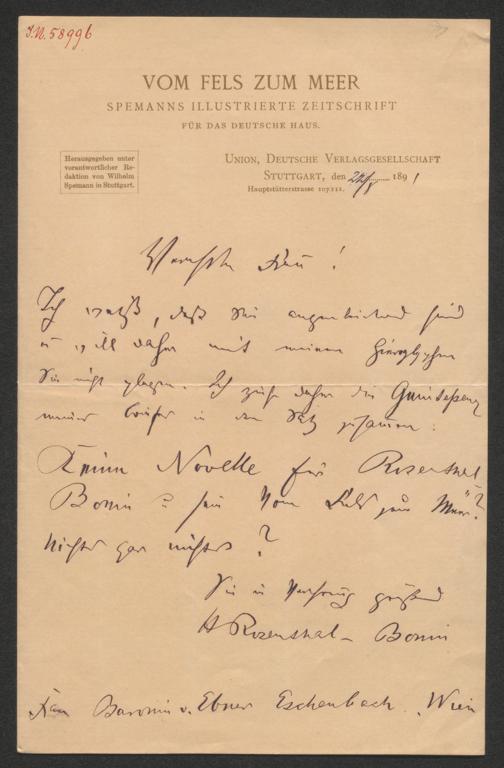 J.N. 58996
VOM FELS ZUM MEER
SPEMANNS ILLUSTRIERTE ZEITSCHRIFT
FÜR DAS DEUTSCHE HAUS.
Herausgegeben unter
verantwortlicher Re-
daktion von Wilhelm
Spemann in Stuttgart.
UNION, DEUTSCHE VERLAGSGESELLSCHAFT
STUTTGART, den 1891
Hauptstätterstrasse
Verehrte Frau!
Ich weiß, daß Sie augenleidend sind
u will daher mit meinen Hieroglyphen
Sie nicht plagen. Ich ziehe daher die Quintessenz
meines Briefes in den Satz zusammen:
Keine Novelle für Rosenthal
Bonin = für Vom Fels zum Meer?
Nichts gar nichts?
Sie in Verehrung grüßend
H Rosenthal - Bonin
Frau Baronin v. Ebner Eschenbach. Wien